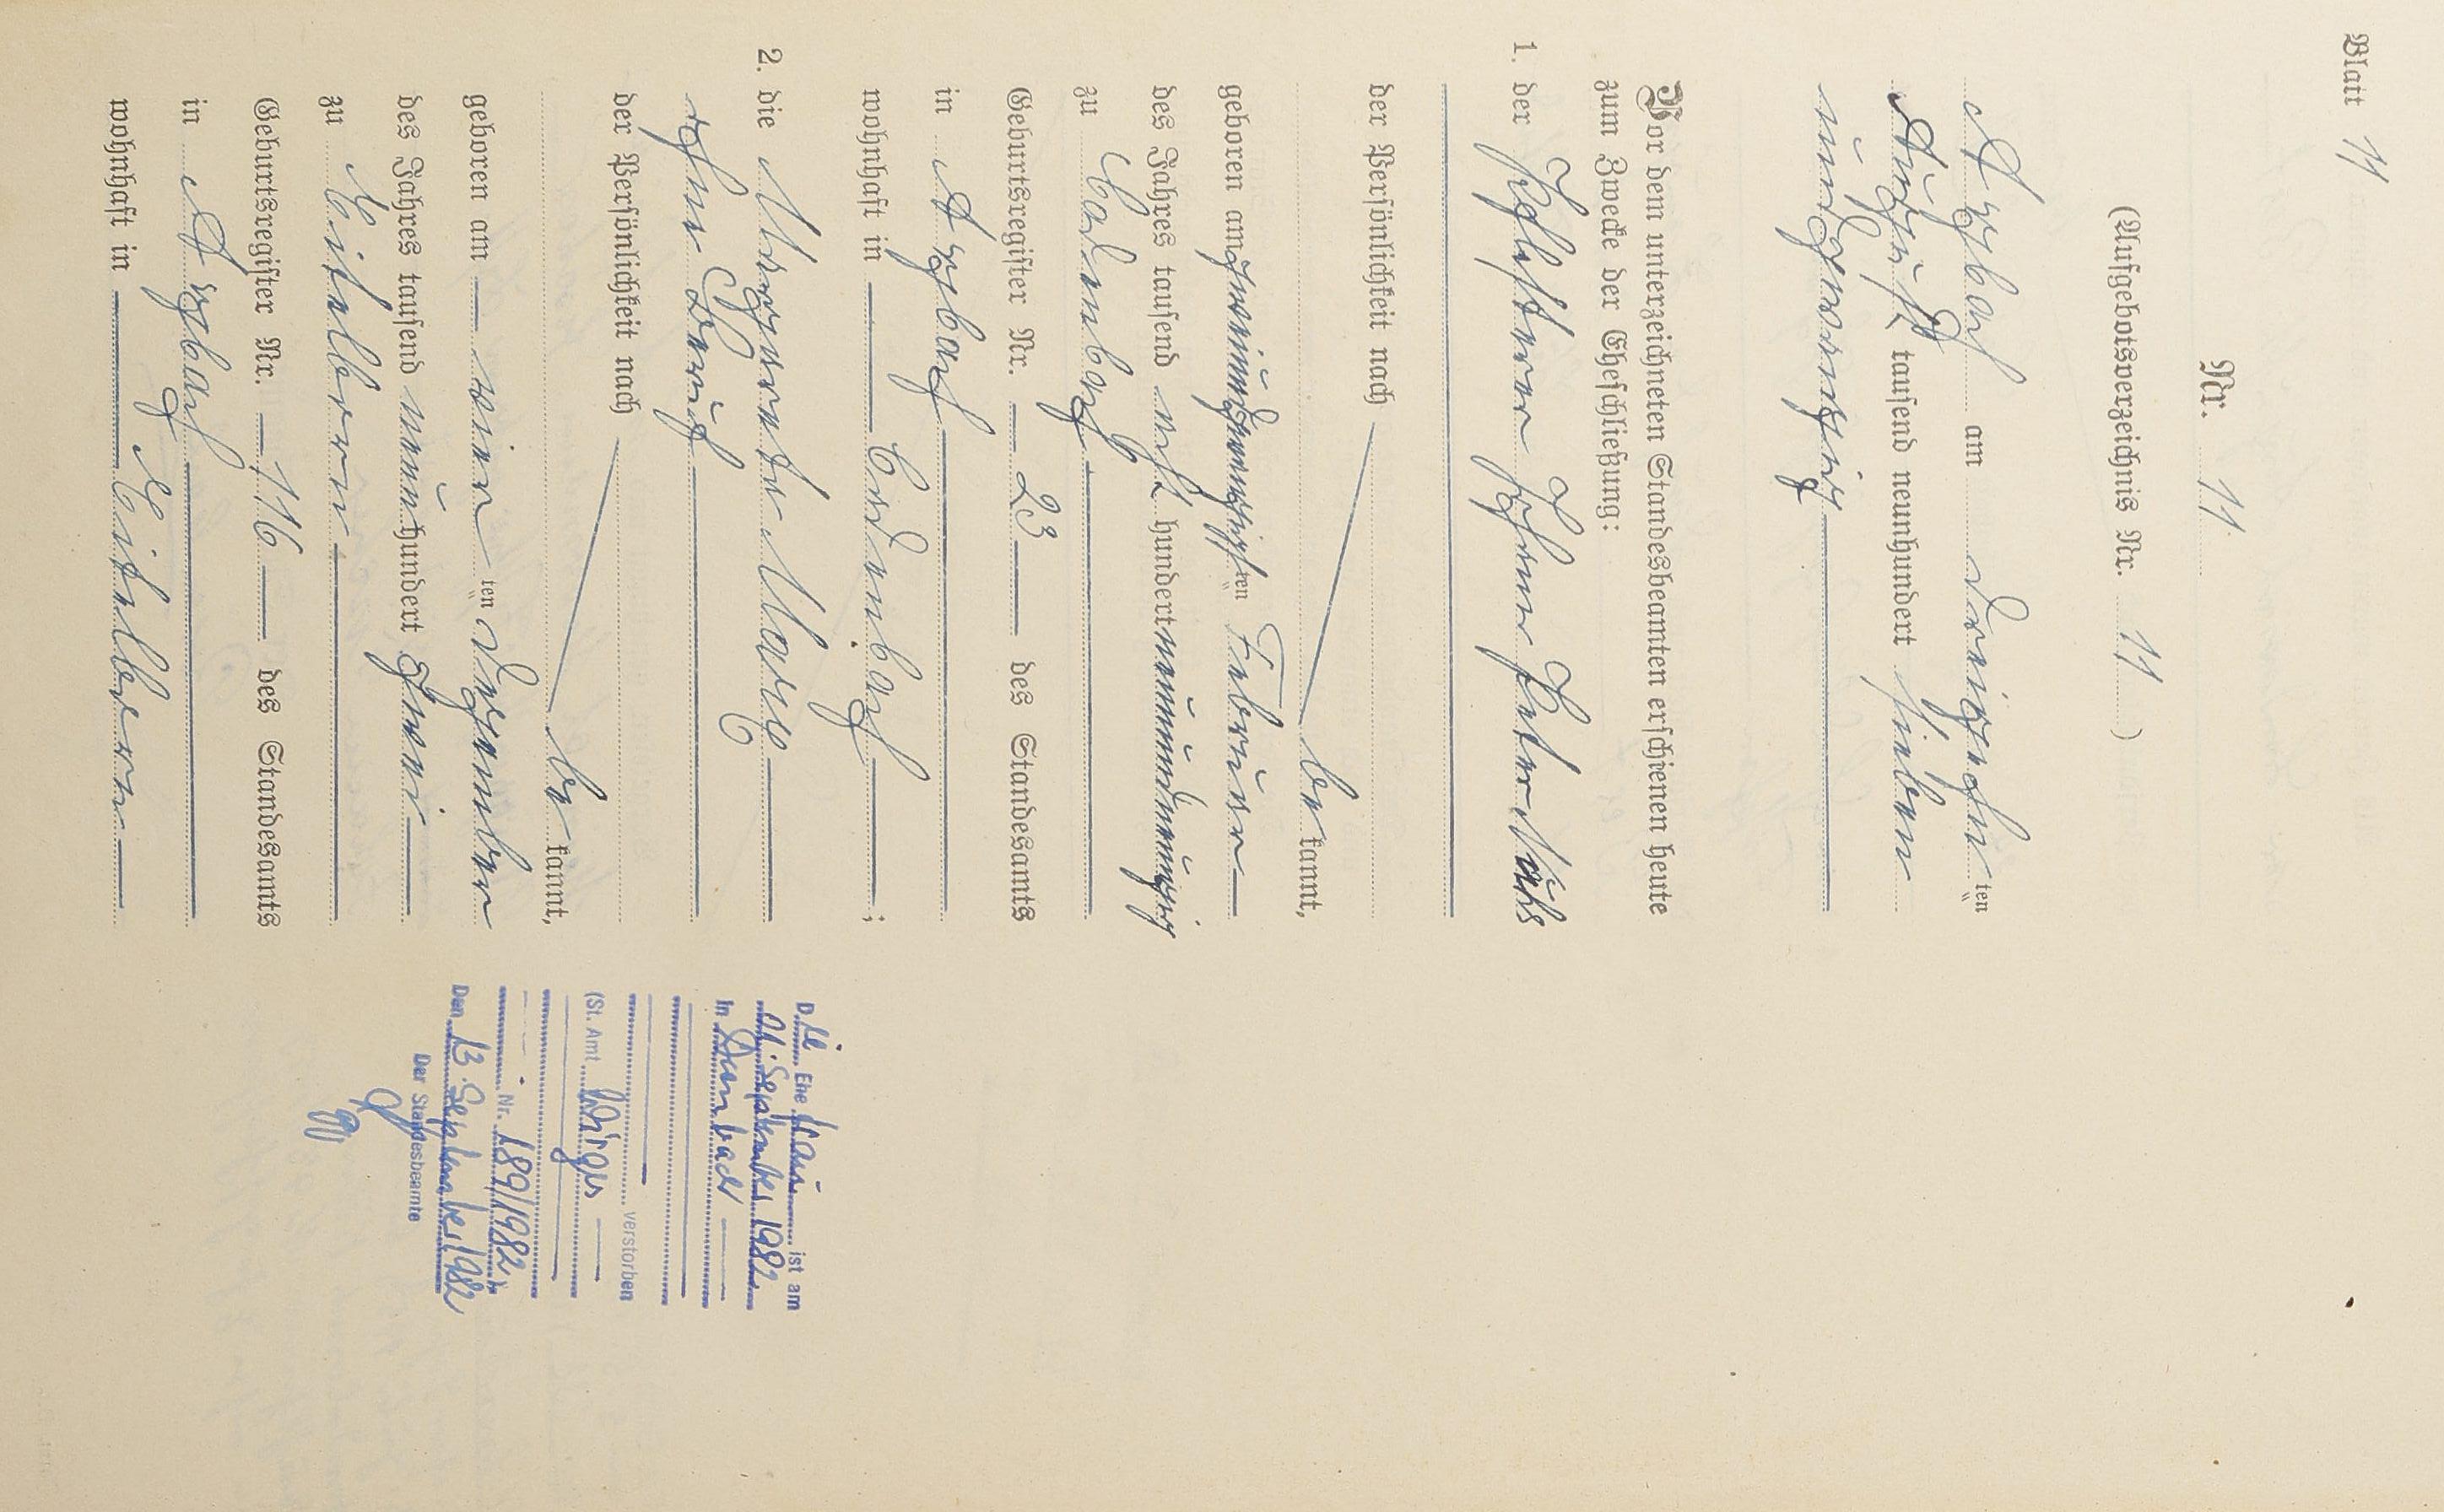 Blatt 11
Nr. 11.
(Aufgebotsverzeichnis Nr. 11)
Arzbach am dreizehnten
August tausend neunhundert sieben
und zwanzig
Vor dem unterzeichneten Standesbeamten erschienen heute
zum Zwecke der Eheschließung:
1. der Johann Peter
der Persönlichkeit nach
be kannt,
geboren am zweiundzwanzigsten Februar
des Jahres tausend acht hundert neunundneunzig
zu Cadenbach
Geburtsregister Nr. 23 des Standesamts
in Arzbach
wohnhaft in Cadenbach ;
2. die Margarete Marx
ohne Beruf
der Persönlichkeit nach
be kannt,
geboren am vierten Dezember
des Jahres tausend neun hundert zwei
zu Eitelborn
Geburtsregister Nr. 116 des Standesamts
in Arzbach
wohnhaft in Eitelborn
Die Ehefrau ist am
01. September 1982
in Dernbach
verstorben
(St. Amt Wirges
Nr. 189/1982)
Den 13. September 1982
Der Standesbeamte